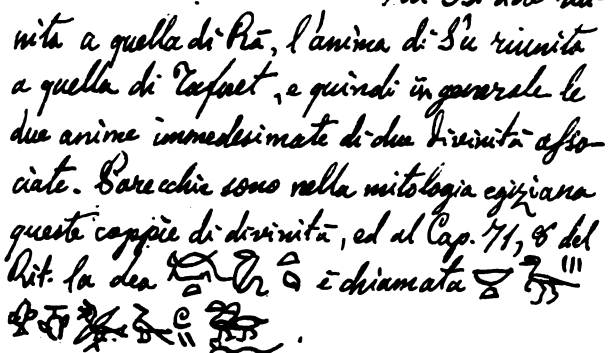 nita a quella di Rā, l'anima di Šu riunita
a quella di Tafnet, e quindi in generale le
due anime immedesimate di due divinità asso-
ciate. Parecchie sono nella mitologia egiziana
queste coppie di divinità, ed al Cap. 71, 8 del
Rit. la dea è chiamata
.